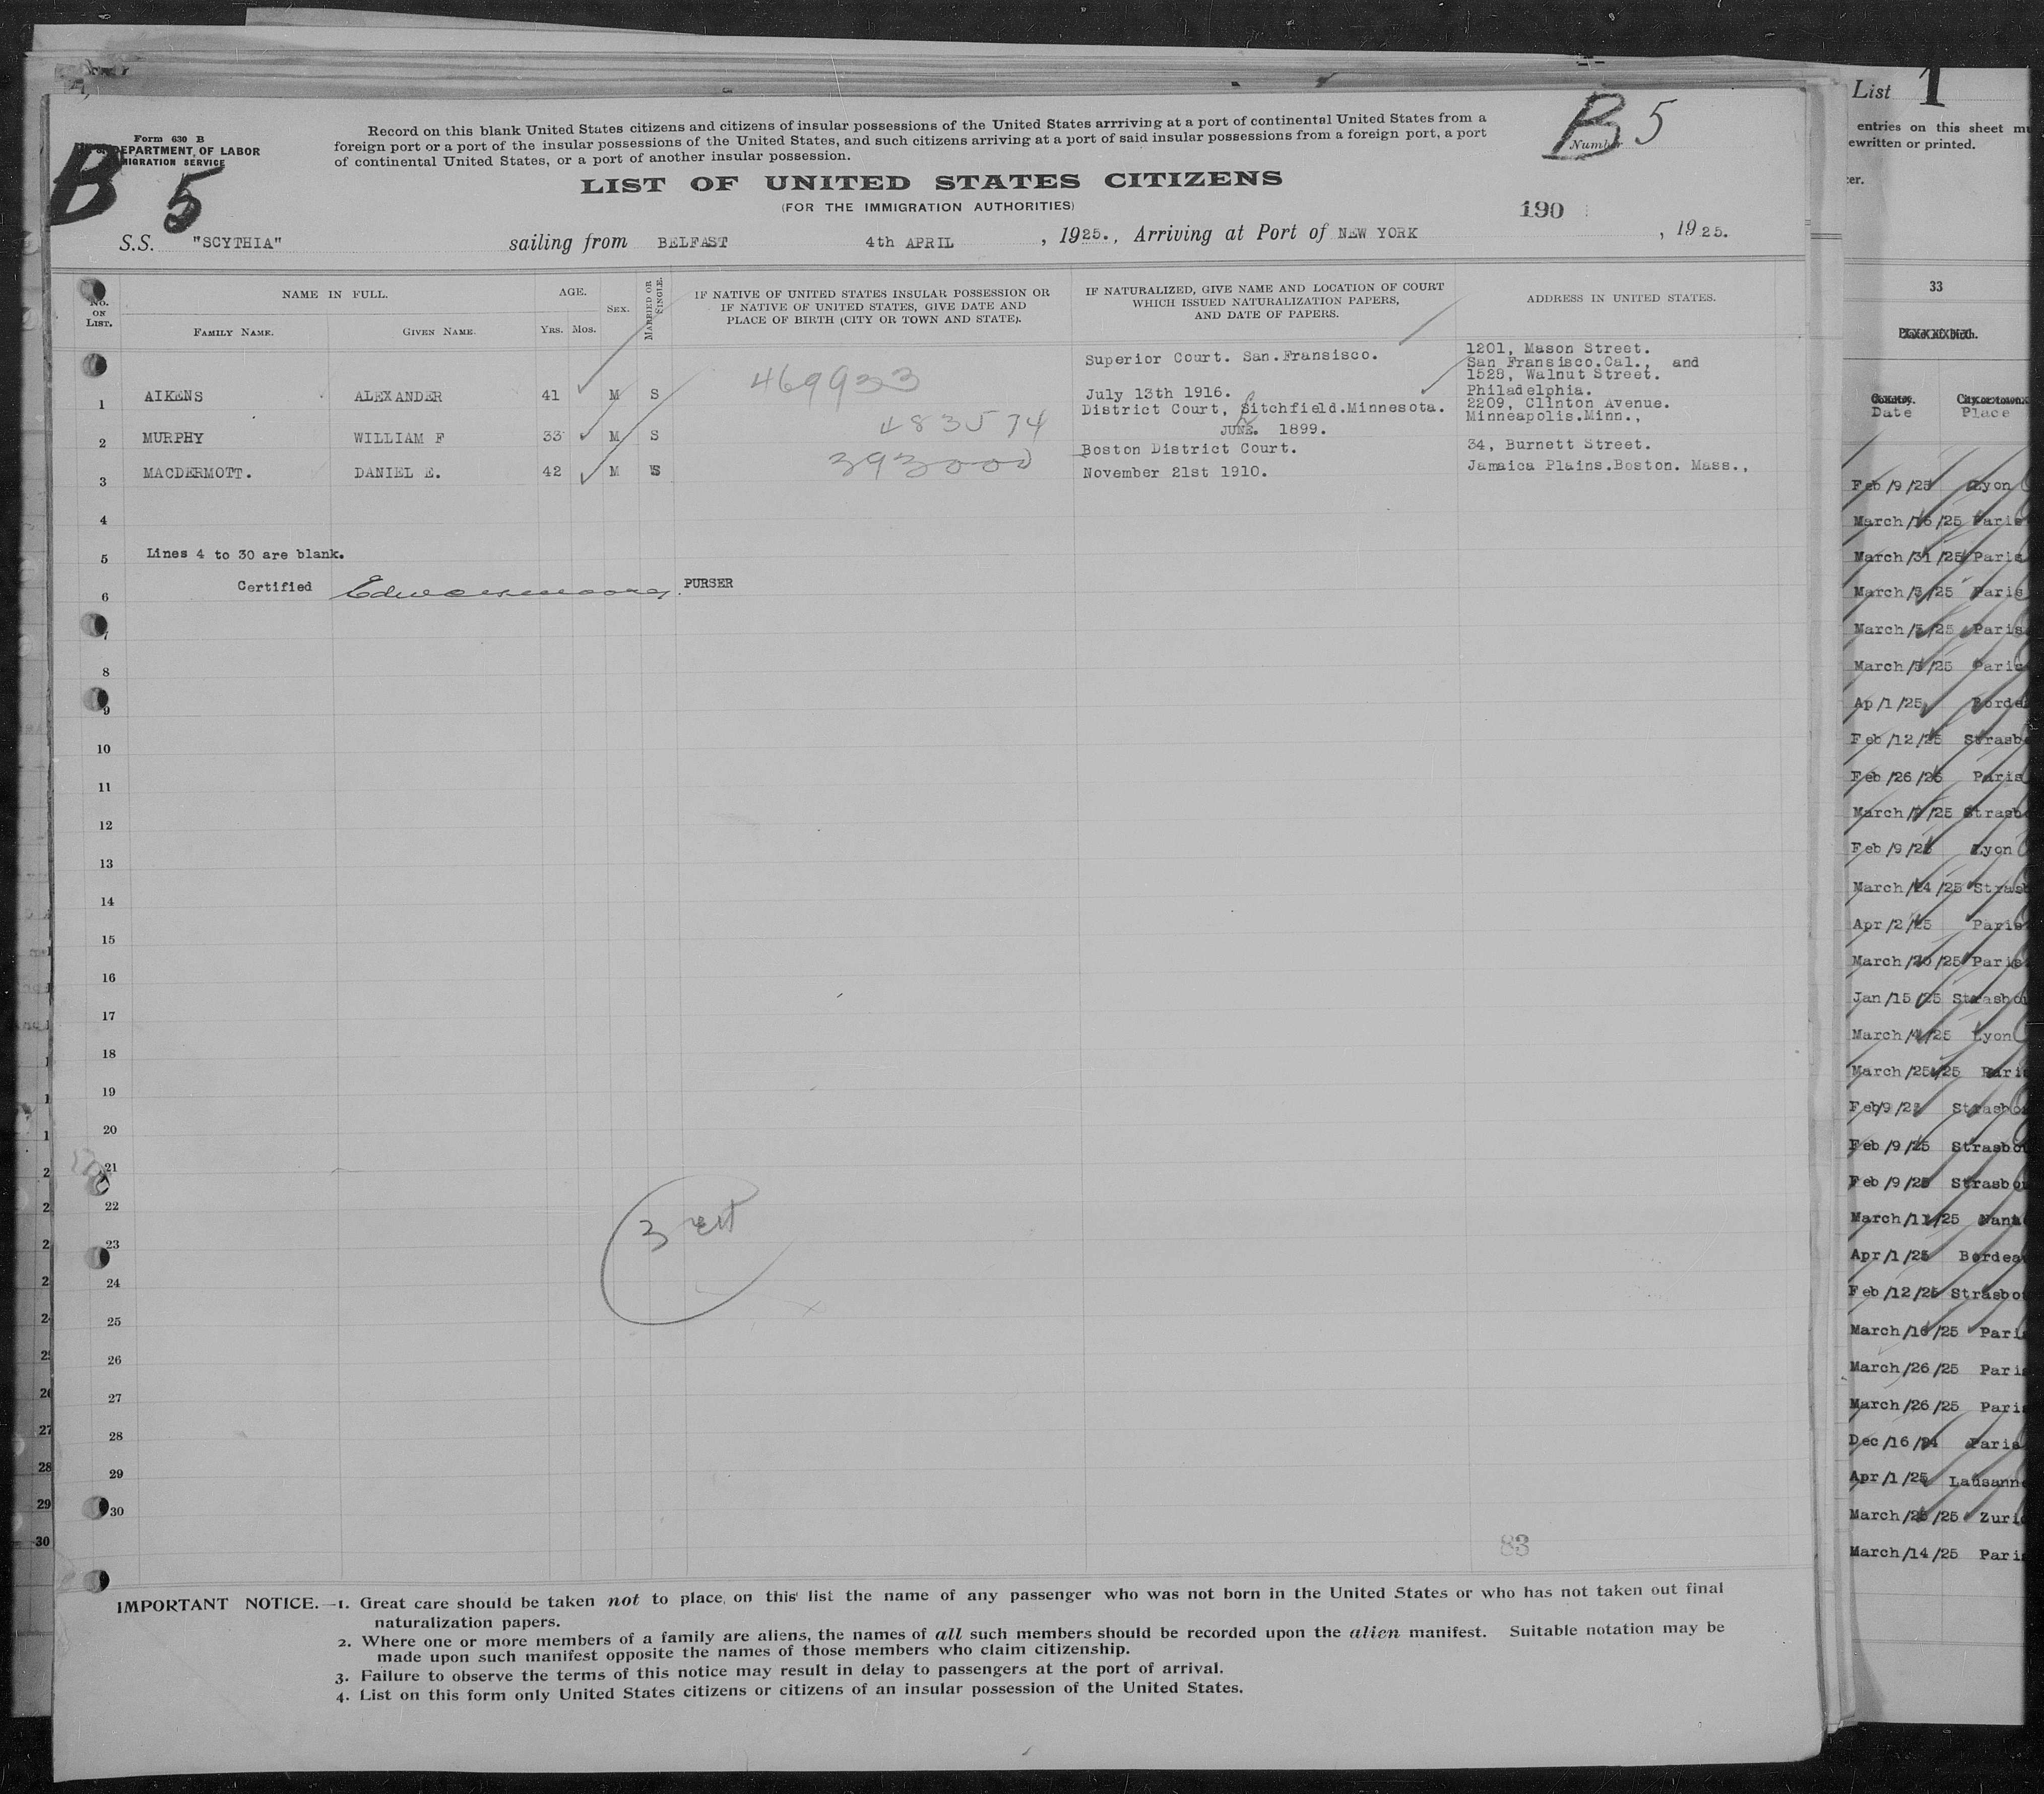 Form 630 B
DEPARTMENT OF LABOR
IMMIGRATION SERVICE
B 5
Record on this blank United States citizens and citizens of insular possessions of the United States arrriving at a port of continental United States from a
foreign port or a port of the insular possessions of the United States, and such citizens arriving at a port of said insular possessions from a foreign port, a port
of continental United States, or a port of another insular possession.
B 5
Number
LIST OF UNITED STATES CITIZENS
(FOR THE IMMIGRATION AUTHORITIES)
190
S.S. "SCYTHIA" sailing from BELFAST 4th APRIL , 1925., Arriving at Port of NEW YORK , 1925.
No. ON LIST.
NAME IN FULL.
FAMILY NAME. GIVEN NAME.
AGE.
YRS. MOS.
SEX.
MARRIED OR SINGLE.
IF NATIVE OF UNITED STATES INSULAR POSSESSION OR
IF NATIVE OF UNITED STATES, GIVE DATE AND
PLACE OF BIRTH (CITY OR TOWN AND STATE).
IF NATURALIZED, GIVE NAME AND LOCATION OF COURT
WHICH ISSUED NATURALIZATION PAPERS,
AND DATE OF PAPERS.
ADDRESS IN UNITED STATES.
1 AIKENS ALEXANDER 41 M S 469933
Superior Court. San.Fransisco.
July 13th 1916.
1201, Mason Street.
San Fransisco.Cal., and
1528, Walnut Street.
Philadelphia.
2 MURPHY WILLIAM F 33 M S 483574
District Court, Litchfield.Minnesota.
JUNE. 1899.
2209, Clinton Avenue.
Minneapolis.Minn.,
3 MACDERMOTT. DANIEL E. 42 M S 393000
Boston District Court.
November 21st 1910.
34, Burnett Street.
Jamaica Plains.Boston. Mass.,
4
5 Lines 4 to 30 are blank.
6 Certified PURSER
7
8
9
10
11
12
13
14
15
16
17
18
19
20
21
22
23
24
25
26
27
28
29
30
3
83
IMPORTANT NOTICE.—1. Great care should be taken not to place on this list the name of any passenger who was not born in the United States or who has not taken out final
naturalization papers.
2. Where one or more members of a family are aliens, the names of all such members should be recorded upon the alien manifest. Suitable notation may be
made upon such manifest opposite the names of those members who claim citizenship.
3. Failure to observe the terms of this notice may result in delay to passengers at the port of arrival.
4. List on this form only United States citizens or citizens of an insular possession of the United States.
List 1
entries on this sheet
ewritten or printed.
33
Date Place
Feb/9/25 Lyon
March/16/25 Paris
March/31/25 Paris
March/3/25 Paris
March/3/25 Paris
March/3/25 Paris
Ap/1/25 Borde
Feb/12/25 Strasb
Feb/26/25 Paris
March/9/25 Strasb
Feb/9/25 Lyon
March/24/25 Stras
Apr/2/25 Paris
March/20/25 Paris
Jan/15/25 Strasbo
March/4/25 Lyon
March/25/25 Pari
Feb/9/25 Strasbo
Feb/9/25 Strasbo
Feb/9/25 Strasbo
March/11/25 Nant
Apr/1/25 Bordea
Feb/12/25 Strasbo
March/16/25 Pari
March/26/25 Pari
March/26/25 Pari
Dec/16/24 Paris
Apr/1/25 Lausann
March/25/25 Zuri
March/14/25 Pari
27
28
29
30